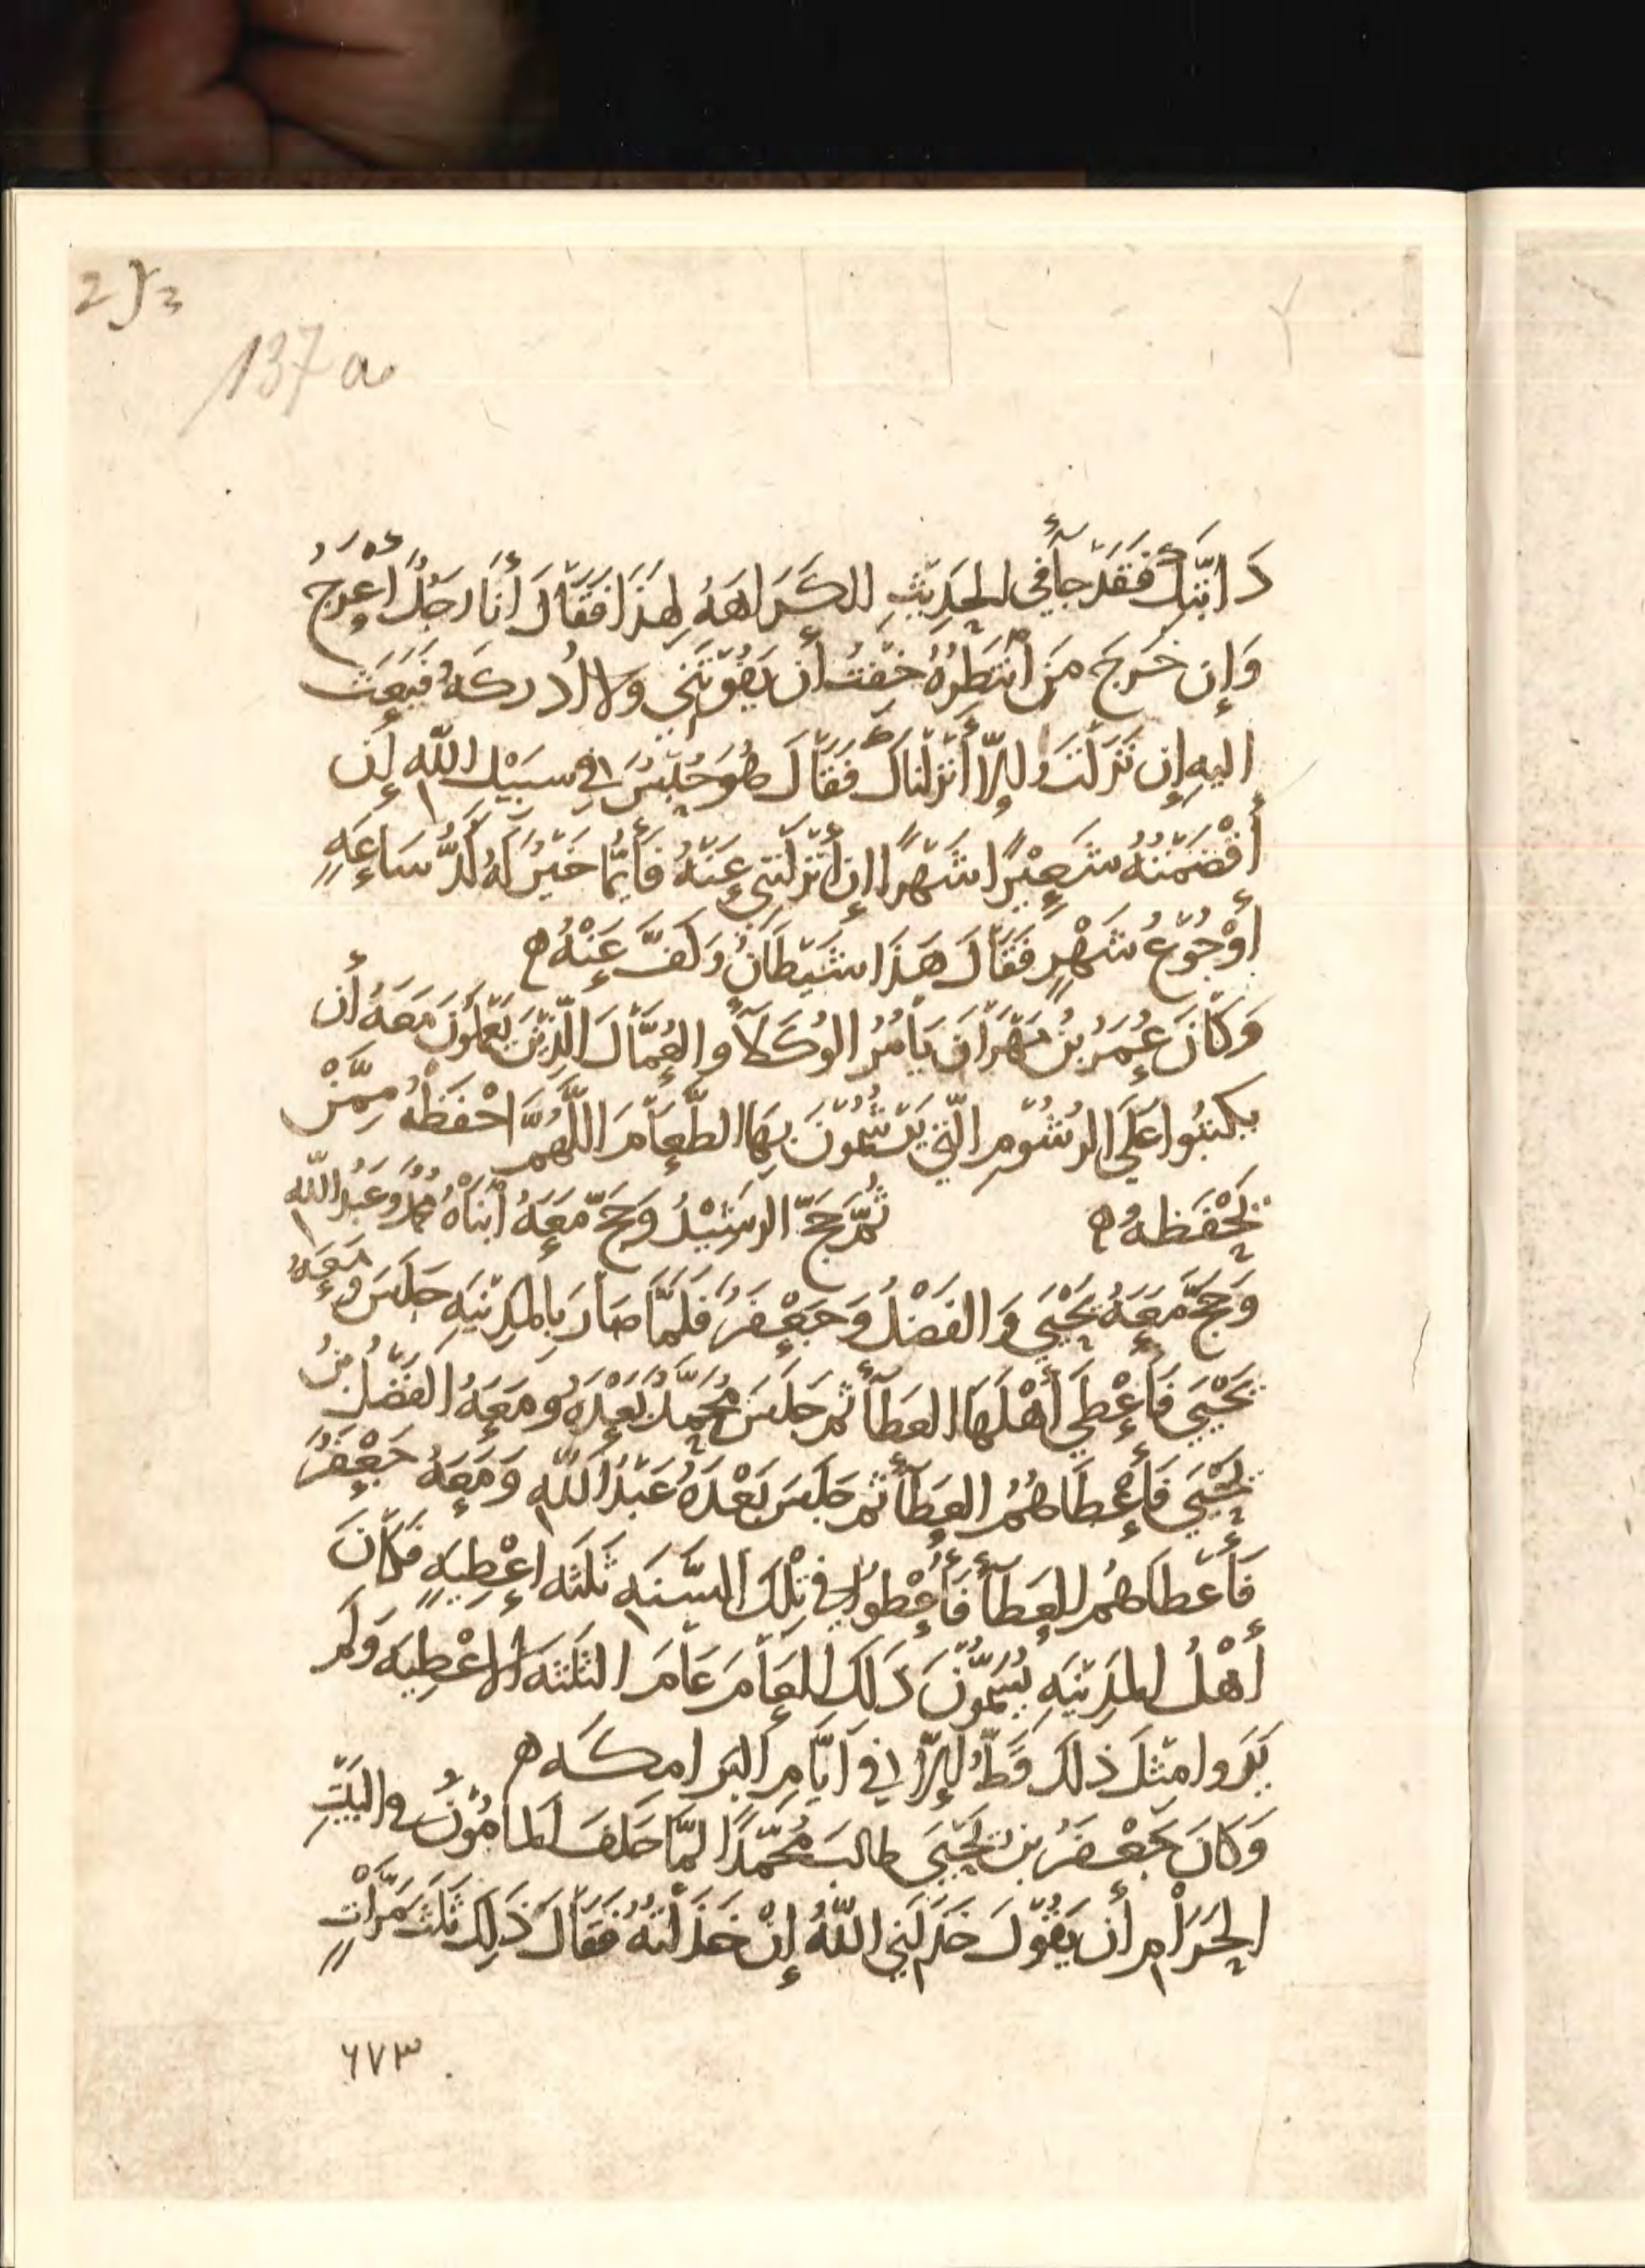 2
137 a.
دَابَّتِكَ فَقَدْ جَآءَ في الحَدِيْثِ الكَرَاهَهُ لِهَذَا فَقَالَ أَنَا رَجُلٌ أَعْرَجُ
وَإِن خَرَجَ مَن أَنتَظِرُهُ خِفْتُ أَن يَفُوْتَنِي وَلا أُدرِكَهُ فَبَعَثَ
اليهِ إِن نَزَلْتَ وَإِلاَّ أَنْزَلْنَاكَ فَقَالَ هُوَ حَبِيْسٌ فِي سَبِيْلِ اللَّهِ إِن
أَقْضَمْتُهُ شَعِيْرًا شَهْرًا إِن أَنْزَلْتَنِي عَنْهُ فَأَيُّمَا خَيْرٌ لَهُ كَدُّ سَاعَةٍ
أَوْ جُوْعُ شَهْرٍ فَقَالَ هَذَا شَيْطَانٌ وَكَفَّ عَنْهُ ه
وَكَانَ عُمَرُ بْنُ مِهْرَانَ يَأْمُرُ الوُكَلآءَ وَالعُمَّالَ الَّذِيْنَ يَعْمَلُونَ مَعَهُ أَن
يكتبُوا عَلَى الرُشُوْمِ الَّتِي يَرْشُمُونَ بِهَا الطَّعَامَ اللَّهُمَّ احْفَظْهُ مِمَّنْ
يَحْفَظهُ ه ثُمَّ حَجَّ الرشِيْدُ وَحَجَّ مَعَهُ ابْنَاهُ مُحَمَّدٌ وَعَبْدُ اللَّهِ
وَحَجَّ مَعَهُ يَحْيَي وَالفَضْلُ وَجَعْفَرُ فَلَمَّا صَارَ بِالمَدِيْنَهِ جَلَسَ وَمَعَهُ
يَحْيَي فَأَعْطَي أَهْلَهَا العَطَآءَ ثم جَلَسَ مُحَمَّدٌ بَعْدَهُ وَمَعَهُ الفَضْلُ بنُ
يَحْيَي فَأَعْطَاهُمُ العَطَآءَ ثم جَلَسَ بَعْدَهُ عَبْدُ اللَّهِ وَمَعَهُ جَعْفَرٌ
فَأَعْطَاهُم العَطَآءَ فَأُعْطُوا في تِلْكَ السَّنَهِ ثَلَثَه أَعْطِيَهٍ فَكَانَ
أَهْلُ المَدِيْنَهِ يُسَمُّوْنَ ذَلِكَ العَامَ عَامَ الثَلَثَه الأَعْطِيَه وَلَم
يَرَوا مِثْلَ ذلك قَطُّ إِلاَّ في أَيَّامِ البَرَامِكَه ه
وَكَانَ جَعْفَرُ بْنُ يَحْيَيَ طالبَ مُحَمَّدًا لَمَّا حَلَفَ لِلمَامُوْنُ في البَيْتِ
الحَرَامِ أَن يَقُوْلَ خَذَلَنِي اللَّهُ إِنْ خَذَلْتُهُ فَقَالَ ذَلِكَ ثَلَثَ مَرَّاتٍ
٦٧٣